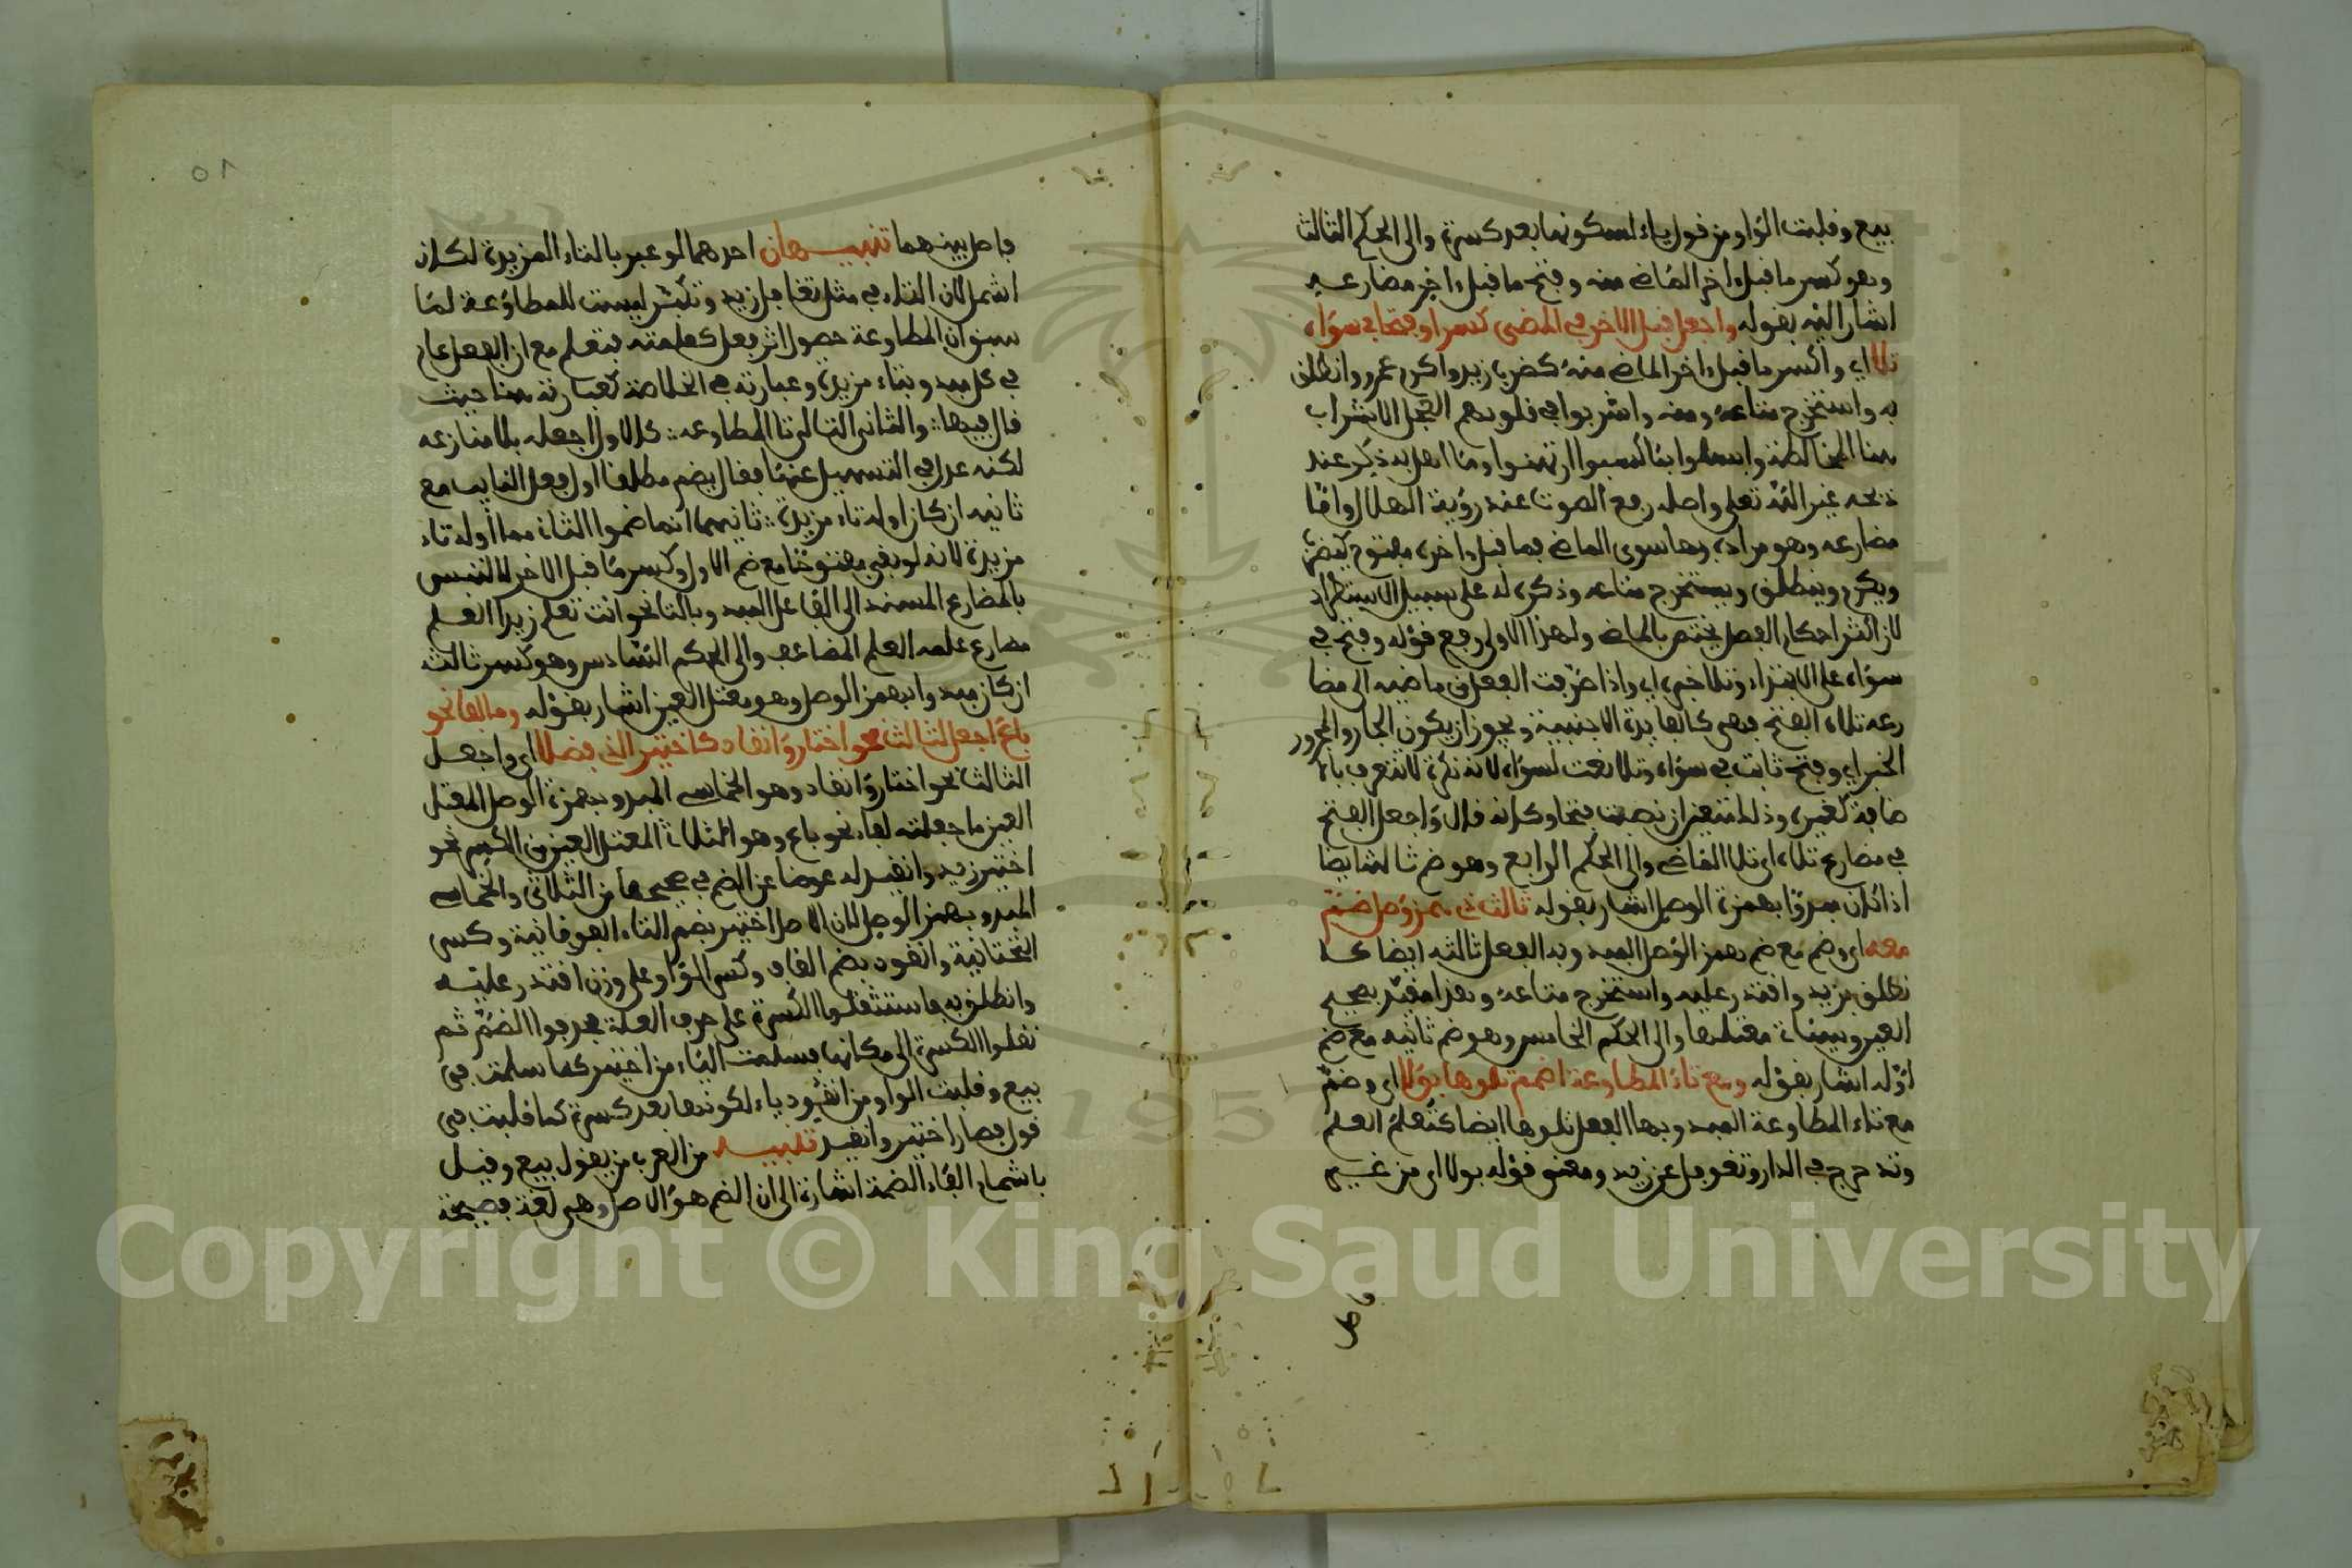 بيع وقلبت الواو من قول ياء لسكونها بعد كسرة والى الحكم الثالث
وهو كسر ما قبل ءاخر الماضي منه وفتح ما قبل ءاخر مضارعه
اشار اليه بقوله واجعل قبل الاخر في المضي كسرا وفتحا في سواه
تلا اي واكسر ما قبل ءاخر الماضي منه كضرب زيد واكرم عمرو وانطلق
به واستخرج متاعه ومنه واشربوا في قلوبهم العجل الاشراب
هنا المخالطة وابسلوا بما كسبوا ارتهنوا وما اهل به ذكر عند
ذبحه غير الله تعلى واصله رفع الصوت عند رؤية الهلال واما
مضارعه وهو مراده بما سوى الماضي فما قبل ءاخره مفتوح كيضرب
ويكرم وينطلق ويستخرج متاعه وذكره له على سبيل الاستطراد
لان اكثر احكام الفصل يختص بالماضي ولهذا الاولى رفع قوله وفتح في
سواه على الابتداء وتلا خبره اي واذا صرفت الفعل من ماضيه الى مضا
رعه تلاه الفتح فهي كالفايدة الاجنبية ويجوز ان يكون الجار والمجرور
الخبر اي وفتح ثابت في سواه وتلا نعت لسواه لانه نكرة لا تتعرف بالا
ضافة كغير وذلك متعين ان نصبت فتحا وكانه قال واجعل الفتح
في مضارع تلاه اي تلا الماضي والى الحكم الرابع وهو ضم ثالثه ايضا
اذا كان مبدوا بهمزة الوصل اشار بقوله ثالث ذي همز وصل ضم
معه اي وضم مع ضم همز الوصل المبدوء به الفعل ثالثه ايضا كا
نطلق بزيد واقتدر عليه واستخرج متاعه وهذا مقيد بصحيح
العين وسيئات معتلها والى الحكم الخامس وهو ضم ثانيه مع ضم
اوله اشار بقوله ومع تاء المطاوعة اضمم تلوها بولا اي وضم
مع تاء المطاوعة المبدوء بها الفعل تلوها ايضا كتعلم العلم
وتدحرج في الدار وتغوفل عن زيد ومعنى قوله بولا اي من غير
فاصل
٥١
فاصل بينهما تنبيهان احدهما لو عبر بالتاء المزيدة لكان
اشمل لان التاء في مثل تغافل زيد وتكبر ليست للمطاوعة لما
سبق ان المطاوعة حصول اثر فعل كعلمته فتعلم مع ان الفعل عام
في كل مبدوء بتاء مزيدة وعبارته في الخلاصة كعبارته هنا حيث
قال فيها والثاني التالي تا المطاوعه كالاول اجعله بلا منازعه
لكنه عدل في التسهيل عنها فقال يضم مطلقا اول فعل النايب مع
ثانيه ان كان اوله تاء مزيدة ثانيهما انما ضموا الثاني مما اوله تاء
مزيدة لانه لو بقي مفتوحا مع ضم الاول وكسر ما قبل الاخر لالتبس
بالمضارع المسند الى الفاعل المبدوء بالتا نحو انت تعلم زيدا العلم
مضارع علمه العلم المضاعف والى الحكم السادس وهو كسر ثالثه
ان كان مبدوا بهمز الوصل وهو معتل العين اشار بقوله وما لفا نحو
باع اجعل لثالث نحو اختار وانقاد كاختير الذي فضلا اي واجعل
الثالث نحو اختار وانقاد وهو الخماسي المبدوء بهمزة الوصل المعتل
العين ما جعلته لفاء نحو باع وهو الثلاثي المعتل العين من الكسر نحو
اختير زيد وانقيد له عوضا عن الضم في صحيحها من الثلاثي والخماسي
المبدوء بهمز الوصل لان الاصل اختير بضم التاء الفوقانية وكسر
التحتانية وانقود بضم القاف وكسر الواو على وزن اقتدر عليه
وانطلق به فاستثقلوا الكسرة على حرف العلة فحذفوا الضم ثم
نقلوا الكسرة الى مكانها فسلمت الياء من اختير كما سلمت في
بيع وقلبت الواو من انقود ياء لكونها بعد كسرة كما قلبت في
قول فصار اختير وانقيد تنبيه من العرب من يقول بيع وقيل
باشمام الفاء الضمة اشارة الى ان الضم هو الاصل وهي لغة فصيحة
Copyright © King Saud University
1957